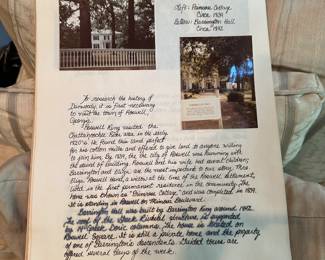 Left: Primrose Cottage
Circa 1839
Below: Barrington Hall
Circa 1842
To research the history of
Dunwoody, it is first necessary
to visit the town of Roswell,
Georgia.
Roswell King visited the
Chattahoochee River area in the early
1820's. He found this land perfect
for his cotton mills and offered to give land to anyone willing
to join him. By 1839, the the city of Roswell was humming with
the sound of building. Roswell King and his wife had several children;
Barrington and Eliza are the most important to our story. Mrs.
Eliza King Hand, a widow at the time of the Roswell settlement,
lived in the first permanent residence in the community. The
home was known as "Primrose Cottage" and was completed in 1839.
It is standing in Roswell on Mimosa Boulevard.
Barrington Hall was built by Barrington King around 1842.
The roof of the Greek Revival structure is supported
by 14 Greek Doric columns. The home is located on
Roswell Square. It is still a private home and the property
of one of Barrington's descendants. Guided tours are
offered several days of the week.